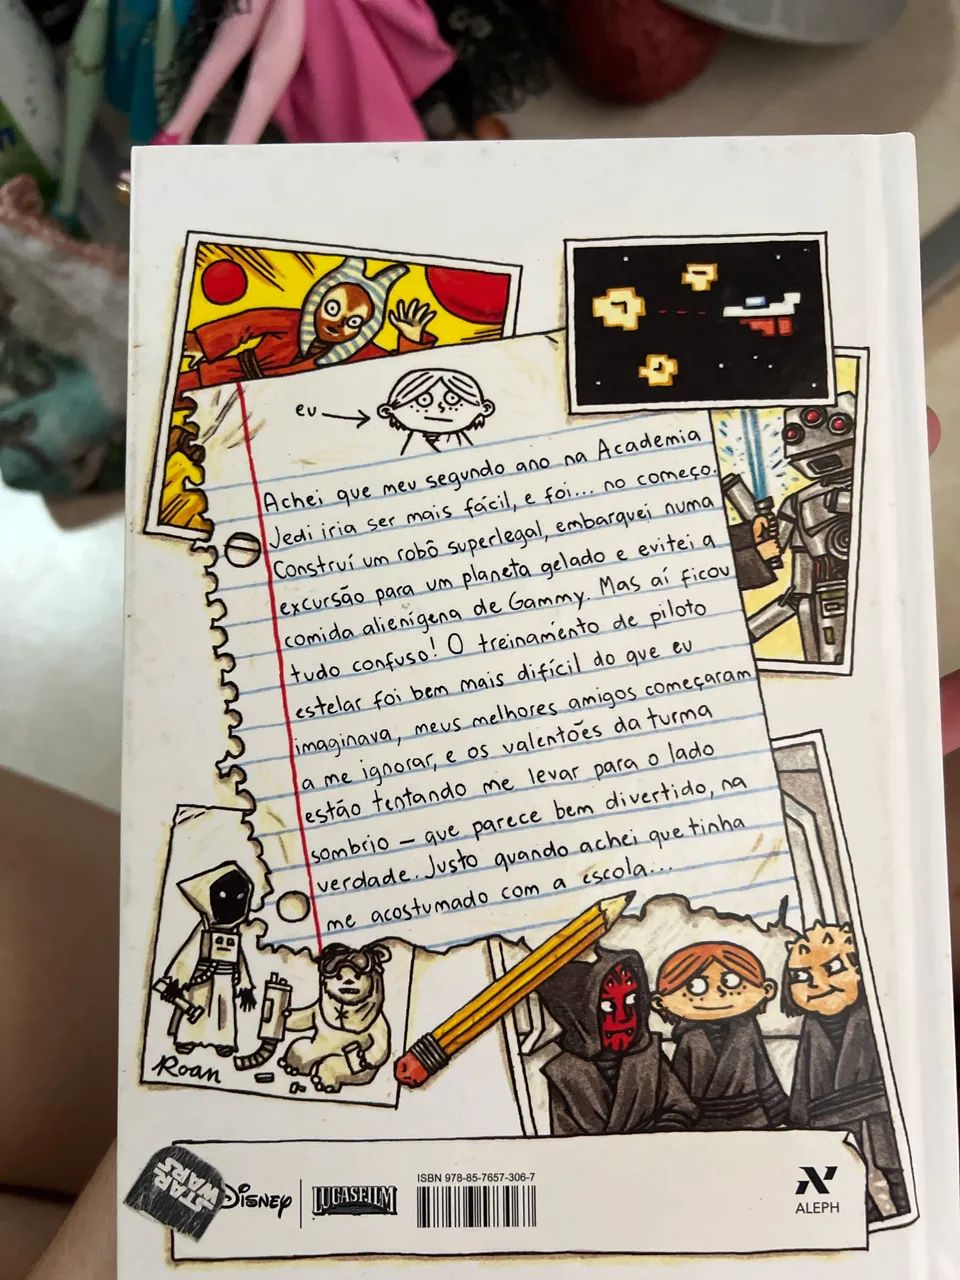 eu
Achei que meu segundo ano na Academia
Jedi iria ser mais fácil, e foi... no começo.
Construí um robô superlegal, embarquei numa
excursão para um planeta gelado e evitei a
comida alienígena de Gammy. Mas aí ficou
tudo confuso! O treinamento de piloto
estelar foi bem mais difícil do que eu
imaginava, meus melhores amigos começaram
a me ignorar, e os valentões da turma
estão tentando me levar para o lado
sombrio — que parece bem divertido, na
verdade. Justo quando achei que tinha
me acostumado com a escola...
Roan
STAR
WARS
Disney
LUCASFILM
ISBN 978-85-7657-306-7
ALEPH